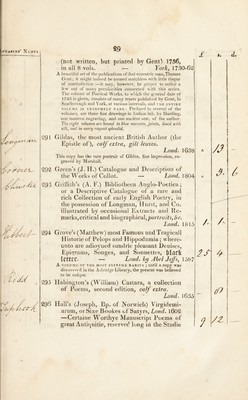 29
£ s. d.
(not written, but printed by Gent) 1736,
in all 8 vols. — York, 1730-62
A beautiful set of the publications of that eccentric man, Thomas
Gent; it might indeed be termed matchless with little danger
of contradiction—it may, however, be proper to notice a
few out of many peculiarities connected with this series.
The volume of Poetical Works, to which the general date of
1736 is given, consists of many tracts published by Gent, in
Scarborough and York, at various intervals, and THE ENTIRE
VOLUME IS EXTREMELY RARE. Prefixed to several of the
volumes, are
The eight volumes are bound in blue morocco, joints, lined with
silk, and in every respect splendid.
Longman 291 Gildas, the most ancient British Author (the
Epistle of), calf extra, gilt leaves.
Lond. 1638 13
This copy has the rare portrait of Gildas, fine impression, en-
graved by Marshall.
292 Green's (J. H.) Catalogue and Description of
the Works of Callot. — Lond. 1804
293 Griffith's (A. F.) Bibliotheca Anglo-Poetica,
or a Descriptive Catalogue of a rare and
rich Collection of early English Poetry, in
the possession of Longman, Hurst, and Co.
illustrated by occasional Extracts and Re-
marks, critical and biographical, portraits, &c.
Lond. 1815
294 Grove's (Matthew) most Famous and Tragicall
Historie of Pelops and Hippodamia; where-
unto are adioyned sundrie pleasant Deuises,
Epigrams, Songes, and Sonnettes, black
letter. — Lond. by Abel Jeffs, 1587 25 4
A VOLUME OF THE MOST EXTREME RARITY; until a copy was
discovered in the Ashridge Library, the present was believed
to be unique.
295 Habington's (William) Castara, a collection
of Poems, second edition, calf extra.
Lond. 1635
296 Hall's (Joseph, Bp. of Norwich) Virgidemi-
arum, or Sixe Bookes of Satyrs, Lond. 1602
—Certaine Worthye Manuscript Poems of
great Antiquitie, reserved long in the Studie
9 12